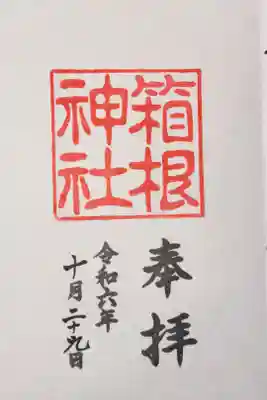 箱根
神社
奉拝
令和六年
十月二十九日